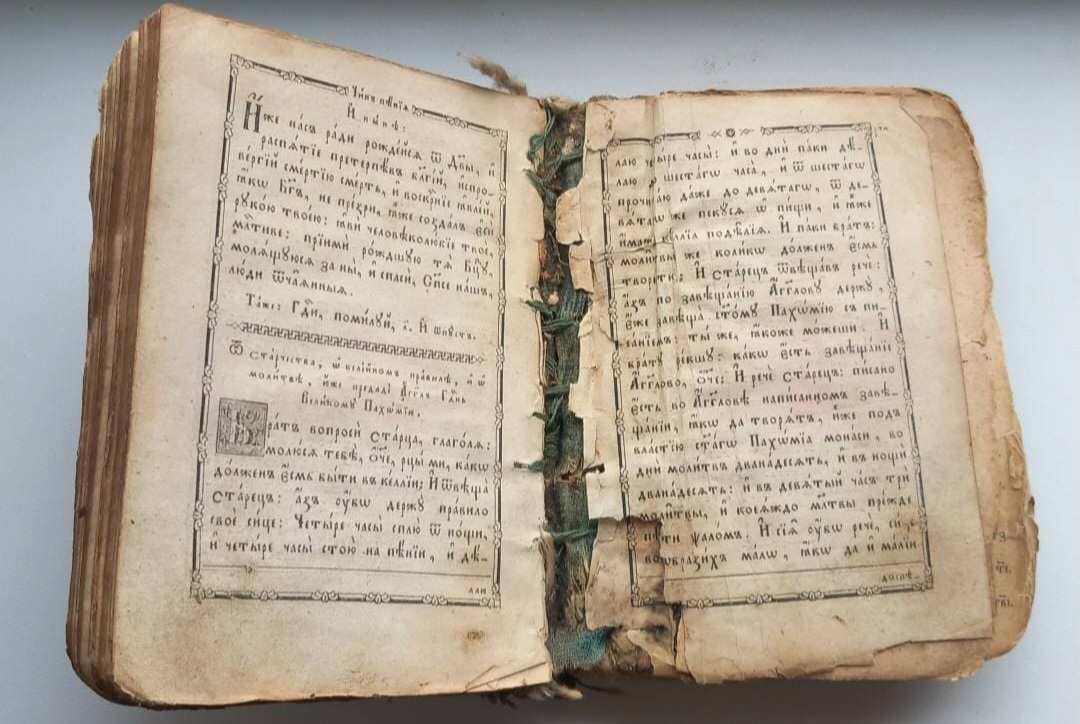 Чи́нъ пѣ́нїѧ
И҆ ны́нѣ:
И҆́же на́съ ра́ди рожде́йсѧ ѿ дв҃ы, и҆
распѧ́тїе претерпѣ́въ бл҃гі́й, и҆спро-
ве́ргїй сме́ртїю сме́рть, и҆ воскрⷭ҇нїе ꙗ҆вле́й,
ꙗ҆́кѡ бг҃ъ, не пре́зри, ꙗ҆̀же созда́лъ є҆сѝ
рꙋко́ю твое́ю: ꙗ҆вѝ человѣколю́бїе твоѐ,
млⷭ҇тиве: прїимѝ ро́ждшꙋю тѧ̀ бцⷣꙋ,
молѧ́щꙋюсѧ за ны̀, и҆ спасѝ, сп҃се на́шъ,
лю́ди ѿча̑ѧнныѧ.
Та́же: Гдⷭ҇и, поми́лꙋй, И҆ ѿпꙋ́стъ.
Ѿ ста́рчества, ѡ҆ келе́йномъ пра́вилѣ, и҆ ѡ҆
моли́твѣ, ю҆́же предадѐ а҆́гг҃лъ гдⷭ҇нь
вели́комꙋ пахѡ́мїи.
Бра́тъ вопросѝ ста́рца, глаго́лѧ:
молю́сѧ тебѣ̀, ѻ҆́ч҃е, рцы́ ми, ка́кѡ
до́лженъ є҆́смь бы́ти въ ке́ллїи; И҆ ѿвѣща̀
ста́рецъ: а҆́зъ ᲂу҆́бѡ держꙋ̀ пра́вило
своѐ си́це: Четы́ре часы̀ сплю̀ ѿ но́щи,
и҆ четы́ре часы̀ стою̀ на пѣ́нїи, и҆ дѣ́-
лаю четы́ре часы̀: и҆ во днѝ па́ки дѣ́-
лаю до шеста́гѡ часа̀, и҆ ѿ шеста́гѡ
прочита́ю да́же до девѧ́тагѡ, ѿ де-
вѧ́тагѡ же пекꙋ́сѧ ѡ҆ пи́щи, и҆ ꙗ҆̀же
и҆́мать ке́ллїа подѣ́лїѧ. И҆ па́ки бра́тъ:
моли̑твы же коли́кѡ до́лженъ є҆́смь
твори́ти: И҆ ста́рецъ ѿвѣща́въ речѐ:
а҆́зъ по завѣща́нїю а҆́гг҃ловꙋ держꙋ̀,
є҆́же завѣща̀ ст҃о́мꙋ пахѡ́мїю съ пи-
са́нїемъ: ты́ же, ꙗ҆́коже мо́жеши. И҆
бра́тꙋ ре́кшꙋ: ка́кѡ є҆́сть завѣща́нїе
а҆́гг҃лово, ѻ҆́ч҃е: И҆ речѐ ста́рецъ: пи́сано
є҆́сть во а҆́гг҃ловѣ напи́санномъ завѣ-
ща́нїи, ꙗ҆́кѡ да творѧ́тъ, и҆̀же под̾
вла́стїю ст҃а́гѡ пахѡ́мїа мона́си, во
днѝ моли́твъ двана́десѧть: и҆ въ нощѝ
двана́десѧть: и҆ въ девѧ́тый ча́съ трѝ
моли̑твы, и҆ коеѧ́ждо мл҃твы пре́жде
пѣ́ти ѱало́мъ. И҆ сїѧ̑ ᲂу҆́бѡ речѐ,
воѡбрази́хъ ма́лѡ, ꙗ҆́кѡ да и҆ ма́лїи